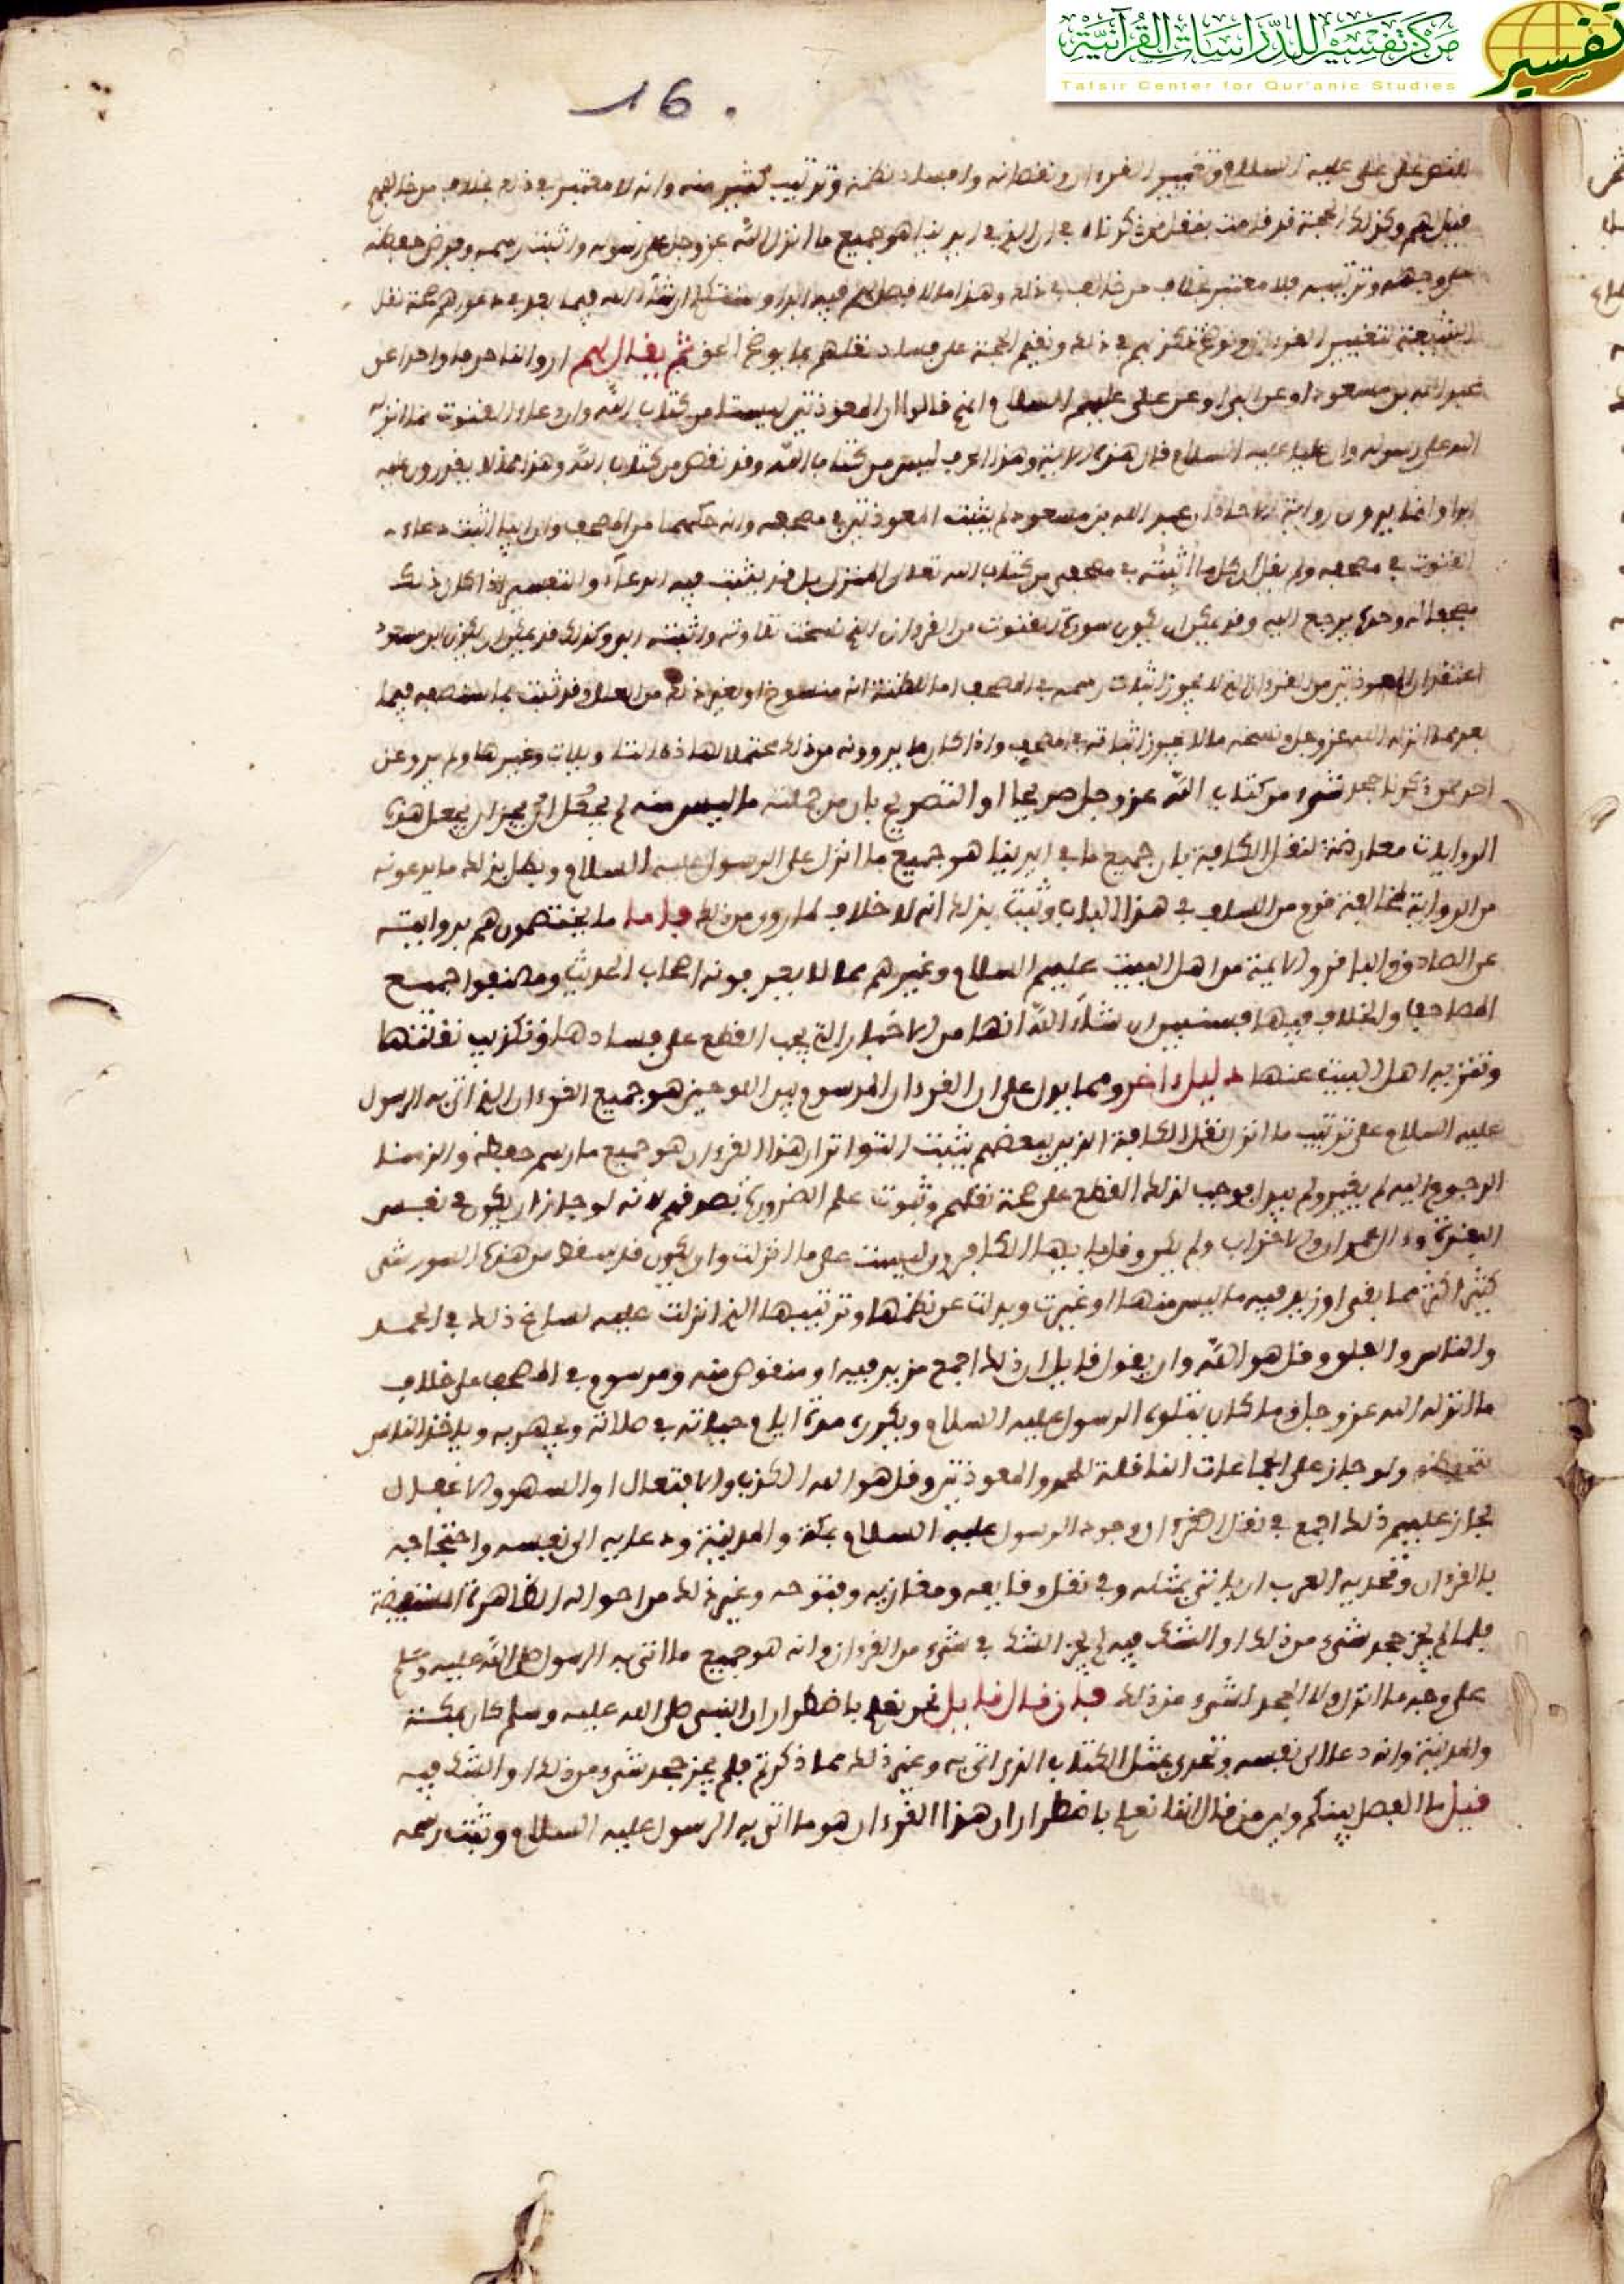 مركز تفسير للدراسات القرآنية
تفسير
Tafsir Center for Qur'anic Studies
16
للنص على علي عليه السلام وتغيير القرءان ونقصانه وافساد نظمه وترتيب كثير منه وانه لا معتبر في ذلك بخلاف من خالفهم
قيل لهم وكذلك الحجة قد قامت بنقل من ذكرناه في ان الذي في ايدينا هو جميع ما انزل الله عز وجل على رسوله واثبت رسمه وفرض حفظه
على وجهه وترتيبه فلا معتبر بخلاف من خالف في ذلك وهذا ما لا فصل لهم فيه ابدا وسنتكلم ان شاء الله فيما بعد في دعواهم صحة نقل
الشيعة لتغيير القرءان ونوضح تكذبهم في ذلك ونقيم الحجة على فساد نقلهم بما يوضح الحق ثم يقال لهم ارووا لنا حرفا واحدا عن
عبد الله بن مسعود او عن ابي او عن علي عليهم السلام انهم قالوا ان المعوذتين ليستا من كتاب الله وان دعاء القنوت مما انزله
الله على رسوله وان عليا عليه السلام قال هذه الاية وهذا الحرف ليس من كتاب الله وقد نقص من كتاب الله وهذا مما لا يقدرون عليه
ابدا وانما يروون رواية الاحاد ان عبد الله بن مسعود لم يثبت المعوذتين في مصحفه وانه حكهما من المصحف وان ابيا اثبت دعاء
القنوت في مصحفه ولم يقل ان كل ما اثبته في مصحفي من كتاب الله تعالى المنزل بل قد يثبت فيه الدعاء والتفسير اذا كان ذلك
مصحفا له وحده يرجع اليه وقد يمكن ان يكون سورة القنوت من القرءان الذي نسخت تلاوته واثبته ابي وكذلك قد يمكن ان يكون ابن مسعود
اعتقد ان المعوذتين من القرءان الذي لا يجوز اثبات رسمه في المصحف اما لظنه انه منسوخ او لغير ذلك من العلل وقد ثبت بما سنصفه فيما
بعد مما انزله الله عز وجل ونسخه ما لا يجوز اثباته في المصحف واذا كان ما يروونه من ذلك محتملا لهذه التاويلات وغيرها ولم يرو عن
احد ممن ذكرنا جحد شيء من كتاب الله عز وجل صريحا او التصريح بان من جملته ما ليس منه لم يحفل لم يجز ان يجعل هذه
الروايات معارضة لنقل الكافة بان جميع ما في ايدينا هو جميع ما انزل على الرسول عليه السلام وبطل بذلك ما يدعونه
من الرواية لمخالفة قوم من السلف في هذا الباب وثبت بذلك انه لا خلاف لما روي من ذلك فاما ما يختصون هم بروايته
عن الصادق والباقر والائمة من اهل البيت عليهم السلام وغيرهم مما لا يعرفونه اصحاب الحديث ومصنفوا جميع
المصاحف والخلاف فيها فسنبين ان شاء الله انها من الاخبار التي يجب القطع على فسادها وتكذيب نقلتها
وتنزيه اهل البيت عنها دليل اخر ومما يدل على ان القرءان المرسوم بين اللوحين هو جميع القرءان الذي اتى به الرسول
عليه السلام على ترتيب ما انزل نقل الكافة الذين ببعضهم يثبت التواتر ان هذا القرءان هو جميع ما رسم حفظه والزمنا
الرجوع اليه لم يغير ولم يبدل فوجب لذلك القطع على صحة نقلهم وثبوت علم الضرورة بصدقهم لانه لو جاز ان يكون في نفس
البقرة وءال عمران والاحزاب ولم يكن وقل يا يها الكافرون ليست على ما انزلت وان يكون قد سقط من هذه السور شيء
كثير اكثر مما بقي او زيد فيه ما ليس منها او غيرت وبدلت عن نظمها وترتيبها الذي انزلت عليه لساغ ذلك في الحمد
والناس والفلق وقل هو الله وان يقول قايل ان ذلك اجمع مزيد فيه او منقوص منه ومرسوم في المصحف على خلاف
ما انزله الله عز وجل وما كان يتلوه الرسول عليه السلام ويكرره مدة ايام حياته في صلاته ويجهر به وياخذ الناس
بتحفظه ولو جاز على الجماعات الناقلة للحمد والمعوذتين وقل هو الله الكذب والافتعال او السهو والاغفال
لجاز عليهم ذلك اجمع في نقل القرءان وجود الرسول عليه السلام بمكة والمدينة ودعايه الى نفسه واحتجاجه
بالقرءان وتحديه العرب ان ياتي بمثله وفي نقل وقايعه ومغازيه وفتوحه وغير ذلك من احواله الظاهرة المستفيضة
فلما لم يجز جحد شيء من ذلك او الشك فيه لم يجز الشك في شيء من القرءان وانه هو جميع ما اتى به الرسول صلى الله عليه وسلم
على وجه ما انزل ولا الجحد لشيء من ذلك فان قال قايل نحن نعلم باضطرار ان النبي صلى الله عليه وسلم كان بمكة
والمدينة وانه دعا الى نفسه وتحدى بمثل الكتاب الذي اتى به وغير ذلك مما ذكرتم فلم يجز جحد شيء من ذلك او الشك فيه
قيل ما الفصل بينكم وبين من قال انا نعلم باضطرار ان هذا القرءان هو ما اتى به الرسول عليه السلام وثبت رسمه